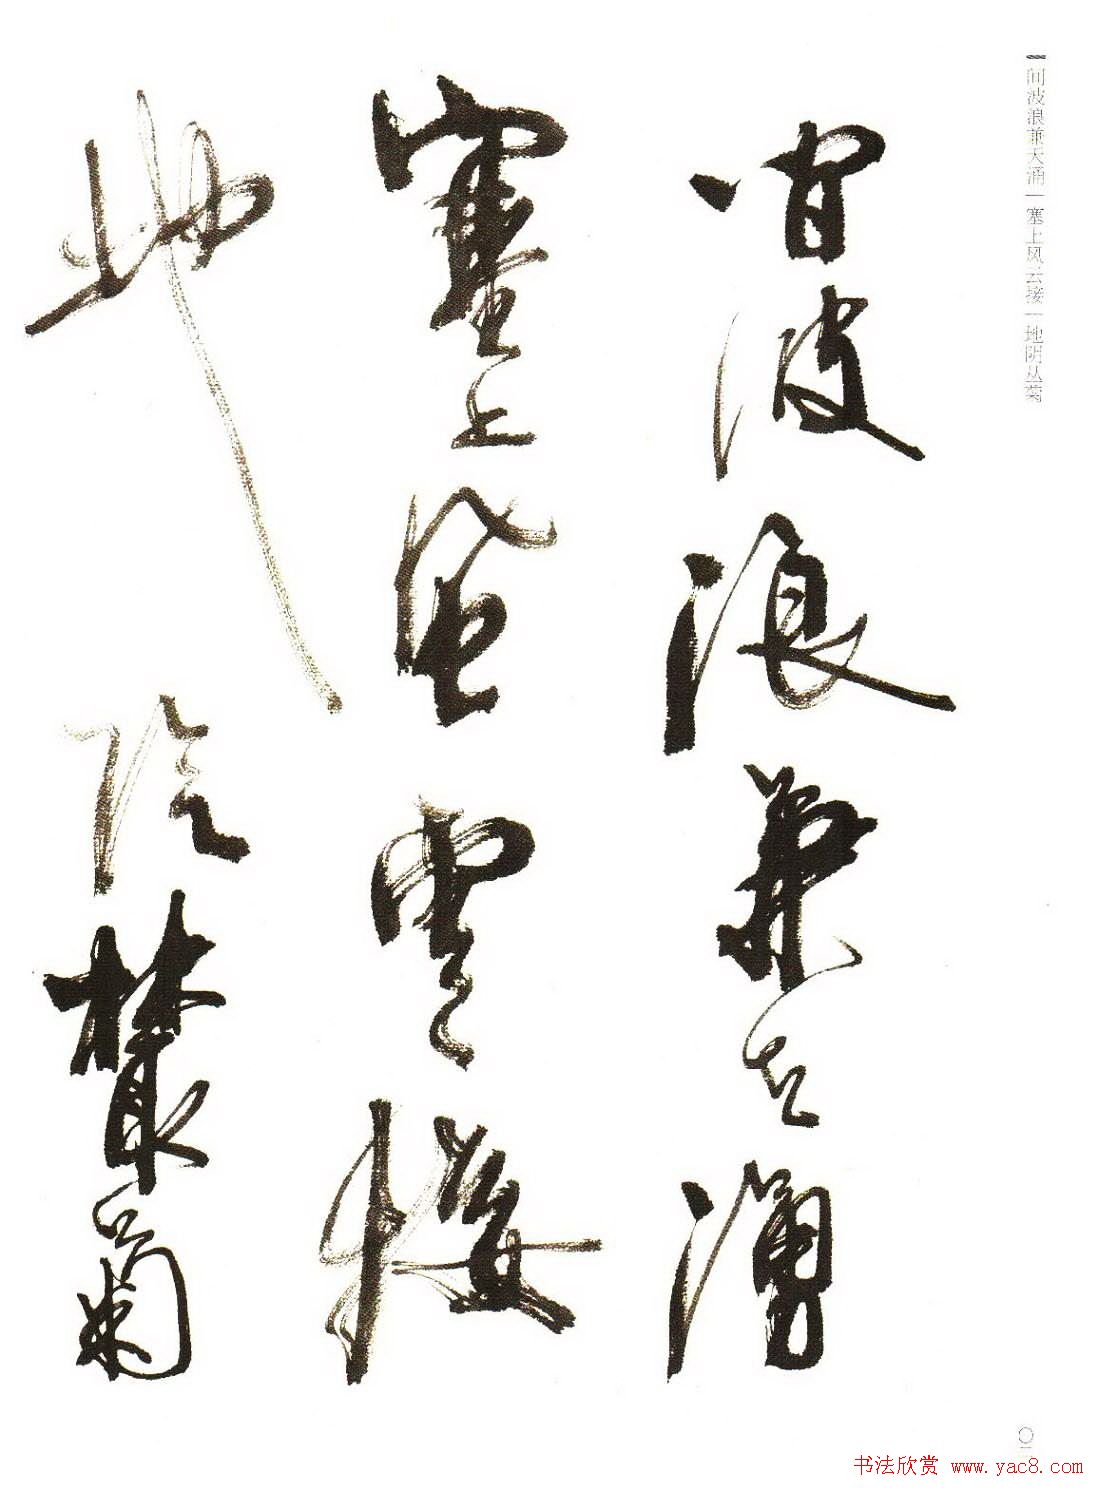 间波浪兼天涌｜塞上风云接｜地阴丛菊
間波浪兼天湧
塞上風雲接
地陰叢菊
书法欣赏 www.yac8.com